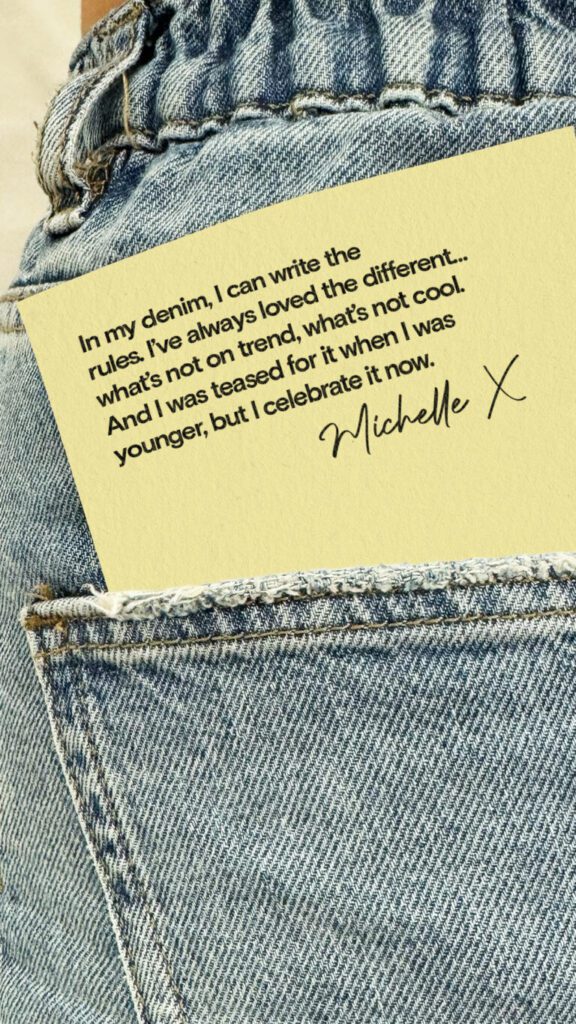 In my denim, I can write the
rules. I've always loved the different...
what's not on trend, what's not cool.
And I was teased for it when I was
younger, but I celebrate it now.
Michelle X